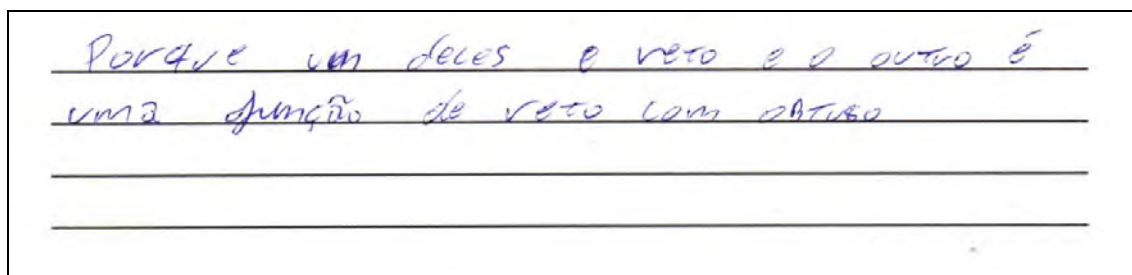 Porque um deles e reto e o outro é
uma junção de reto com obtuso